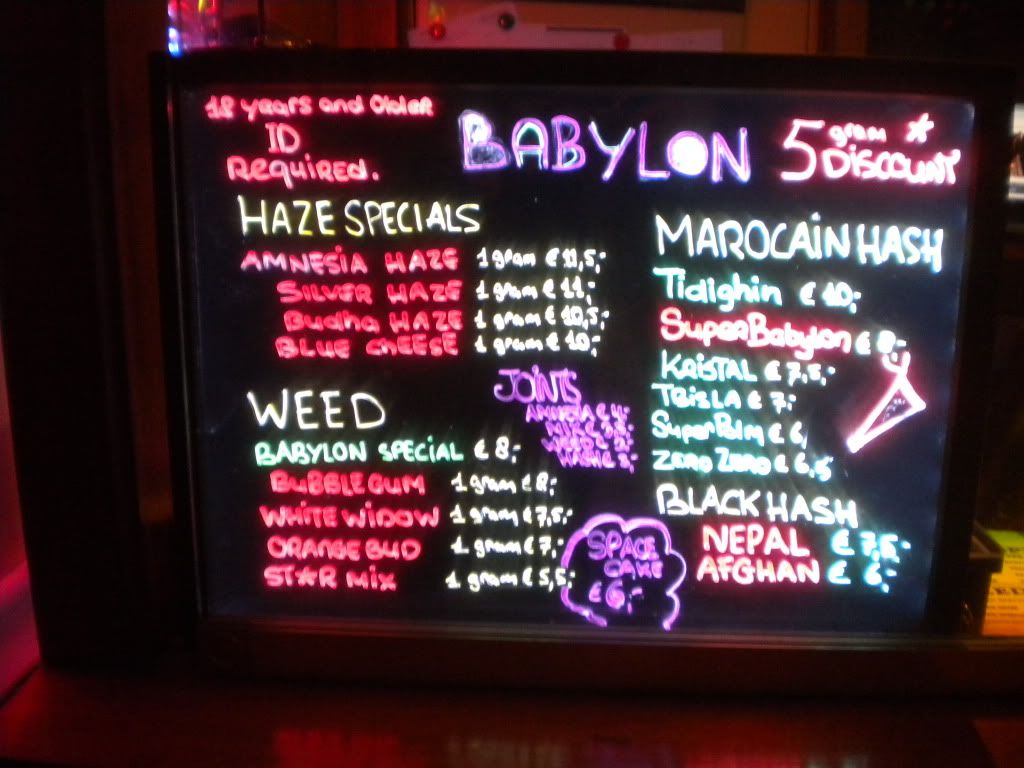 18 years and Older
ID
Required.
BABYLON
5 gram *
DISCOUNT
HAZE SPECIALS
AMNESIA HAZE 1 gram € 11,5,-
SILVER HAZE 1 gram € 11,-
Budha HAZE 1 gram € 10,5,-
BLUE CHEESE 1 gram € 10,-
WEED
BABYLON SPECIAL € 8,-
BUBBLEGUM 1 gram € 8,-
WHITE WIDOW 1 gram € 7,5,-
ORANGE BUD 1 gram € 7,-
STAR MIX 1 gram € 5,5,-
JOINTS
AMNESIA € 4,-
SPACE
CAKE
€ 6,-
MAROCAIN HASH
Tidighin € 10,-
SuperBabylon € 8,-
KRISTAL € 7,5,-
TBISLA € 7,-
SuperPolm € 6,
ZERO ZERO € 6,5
BLACK HASH
NEPAL € 7,5,-
AFGHAN € 6,-